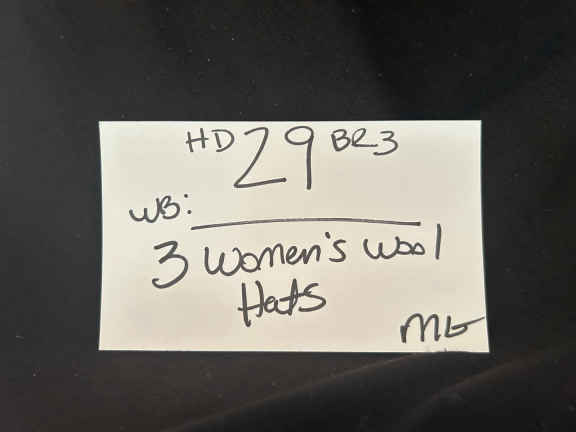 HD 29 BR3
WB:
3 Women's Wool
Hats